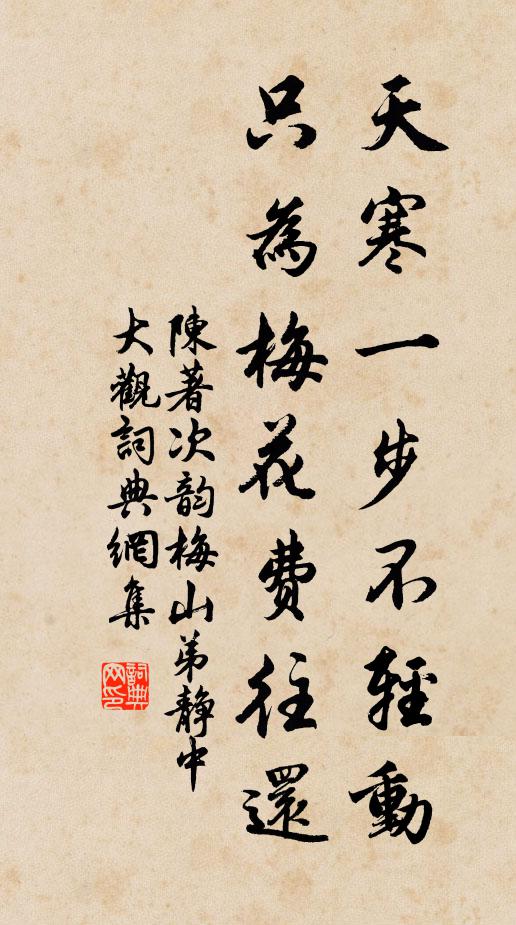 天寒一步不輕動
只為梅花費往還
陳著次韵梅山弟靜中
大觀詞典網集
詞典網印